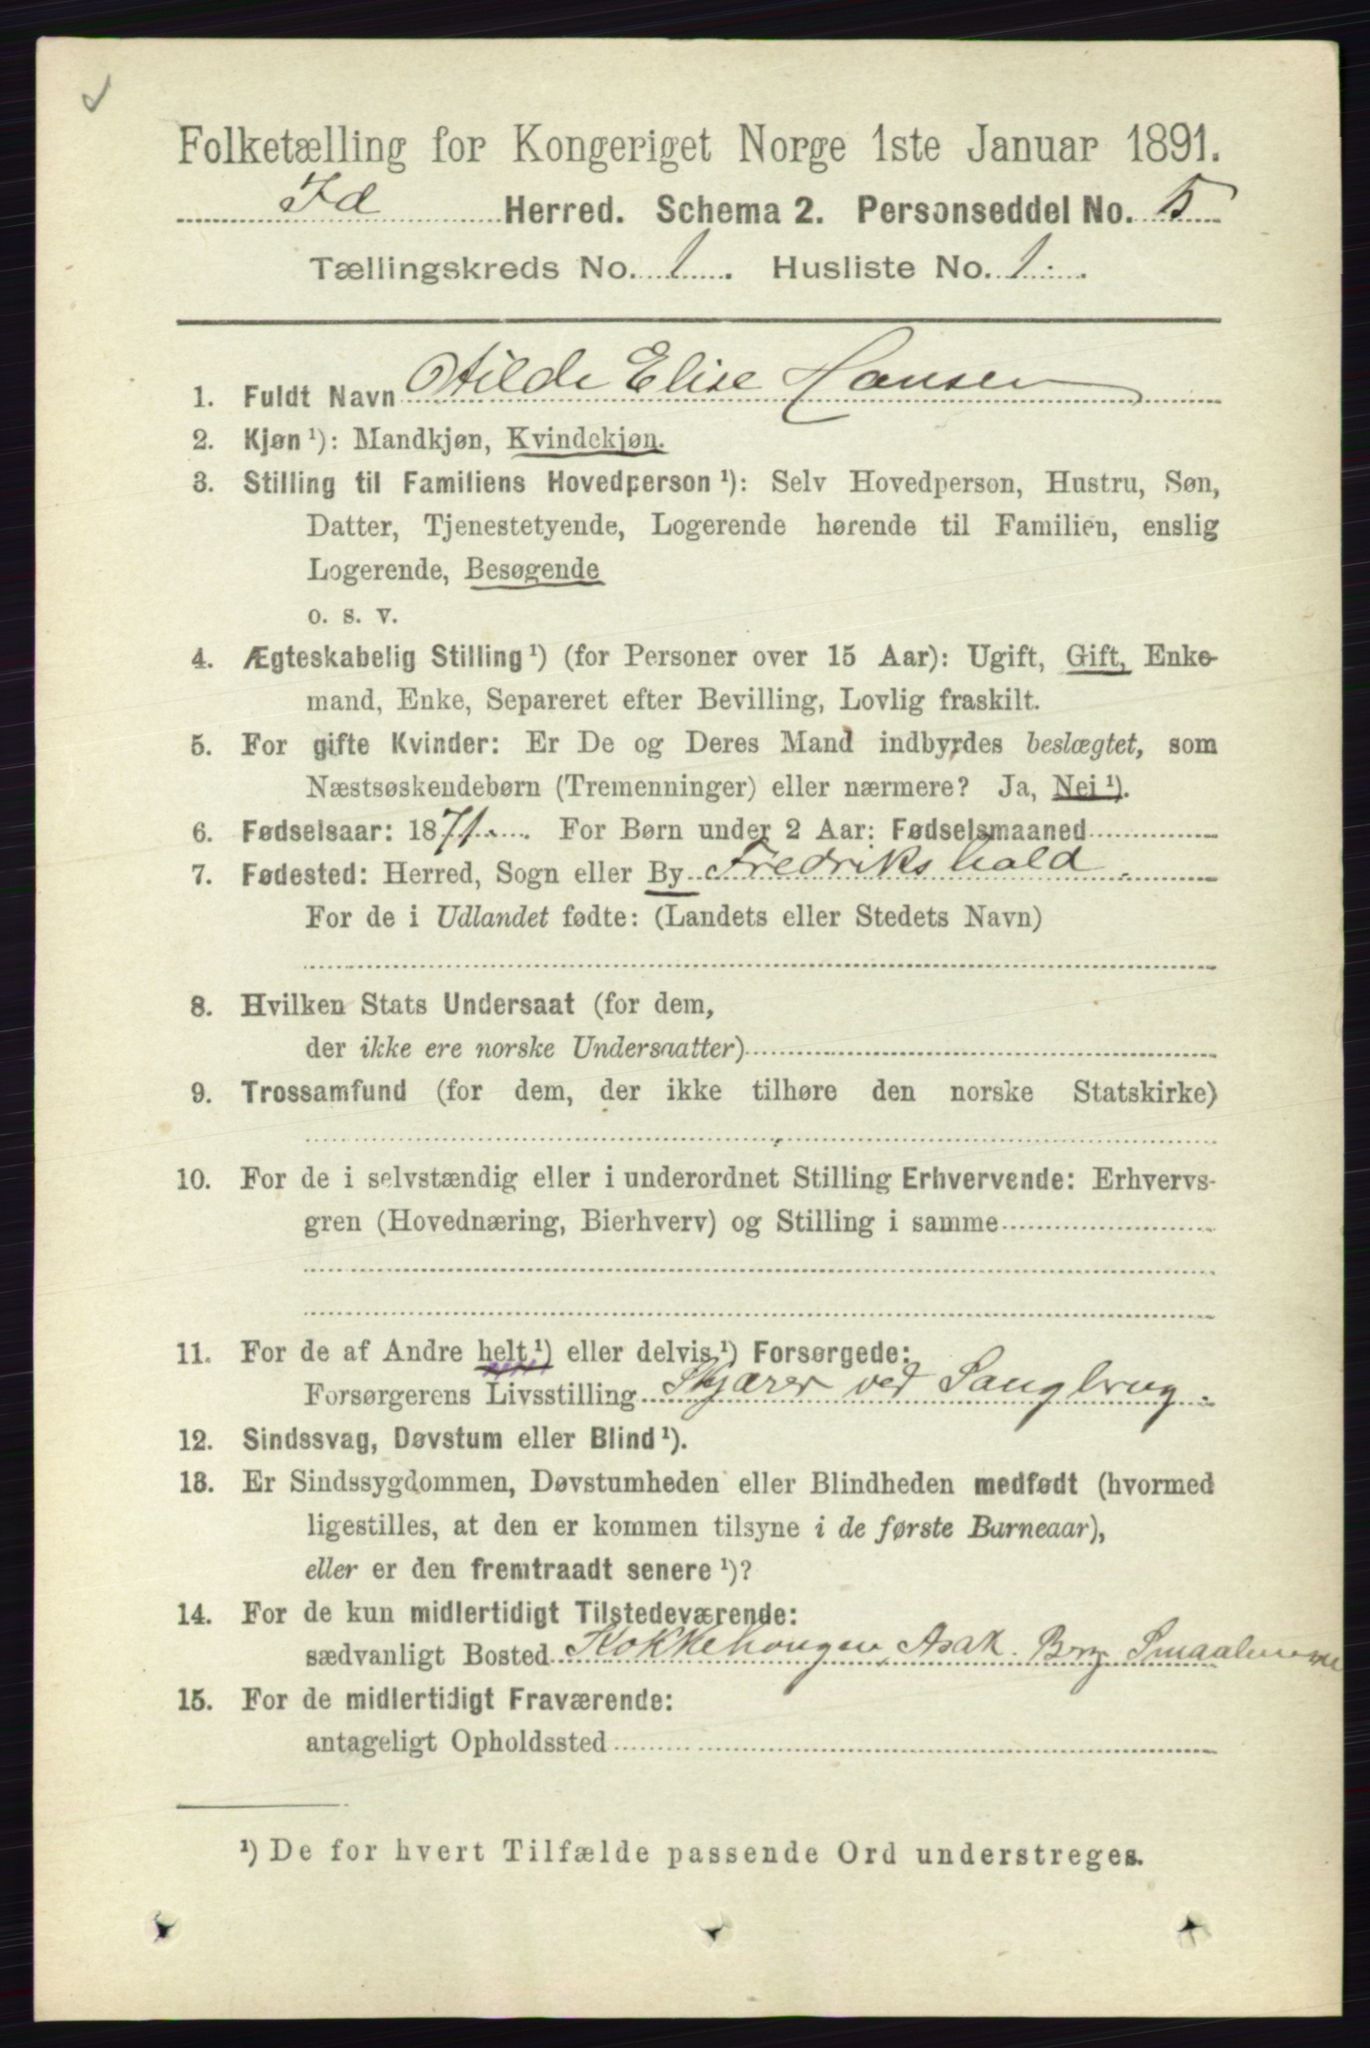 Folketælling for Kongeriget Norge 1ste Januar 1891.
Id Herred. Schema 2. Personseddel No. 5
Tællingskreds No. 1. Husliste No. 1.
1. Fuldt Navn Otilde Elise Hansen
2. Kjøn ¹): Mandkjøn, Kvindekjøn.
3. Stilling til Familiens Hovedperson ¹): Selv Hovedperson, Hustru, Søn,
Datter, Tjenestetyende, Logerende hørende til Familien, enslig
Logerende, Besøgende
o. s. v.
4. Ægteskabelig Stilling ¹) (for Personer over 15 Aar): Ugift, Gift, Enke-
mand, Enke, Separeret efter Bevilling, Lovlig fraskilt.
5. For gifte Kvinder: Er De og Deres Mand indbyrdes beslægtet, som
Næstsøskendebørn (Tremenninger) eller nærmere? Ja, Nei ¹).
6. Fødselsaar: 1871. For Børn under 2 Aar: Fødselsmaaned
7. Fødested: Herred, Sogn eller By Fredrikshald.
For de i Udlandet fødte: (Landets eller Stedets Navn)
8. Hvilken Stats Undersaat (for dem,
der ikke ere norske Undersaatter)
9. Trossamfund (for dem, der ikke tilhøre den norske Statskirke)
10. For de i selvstændig eller i underordnet Stilling Erhvervende: Erhvervs-
gren (Hovednæring, Bierhverv) og Stilling i samme
11. For de af Andre helt ¹) eller delvis ¹) Forsørgede:
Forsørgerens Livsstilling Skjærer ved Saugbrug.
12. Sindssvag, Døvstum eller Blind ¹).
13. Er Sindssygdommen, Døvstumheden eller Blindheden medfødt (hvormed
ligestilles, at den er kommen tilsyne i de første Barneaar),
eller er den fremtraadt senere ¹)?
14. For de kun midlertidigt Tilstedeværende:
sædvanligt Bosted Kokkehougen, Asak. Brg. Smaalenene
15. For de midlertidigt Fraværende:
antageligt Opholdssted
¹) De for hvert Tilfælde passende Ord understreges.